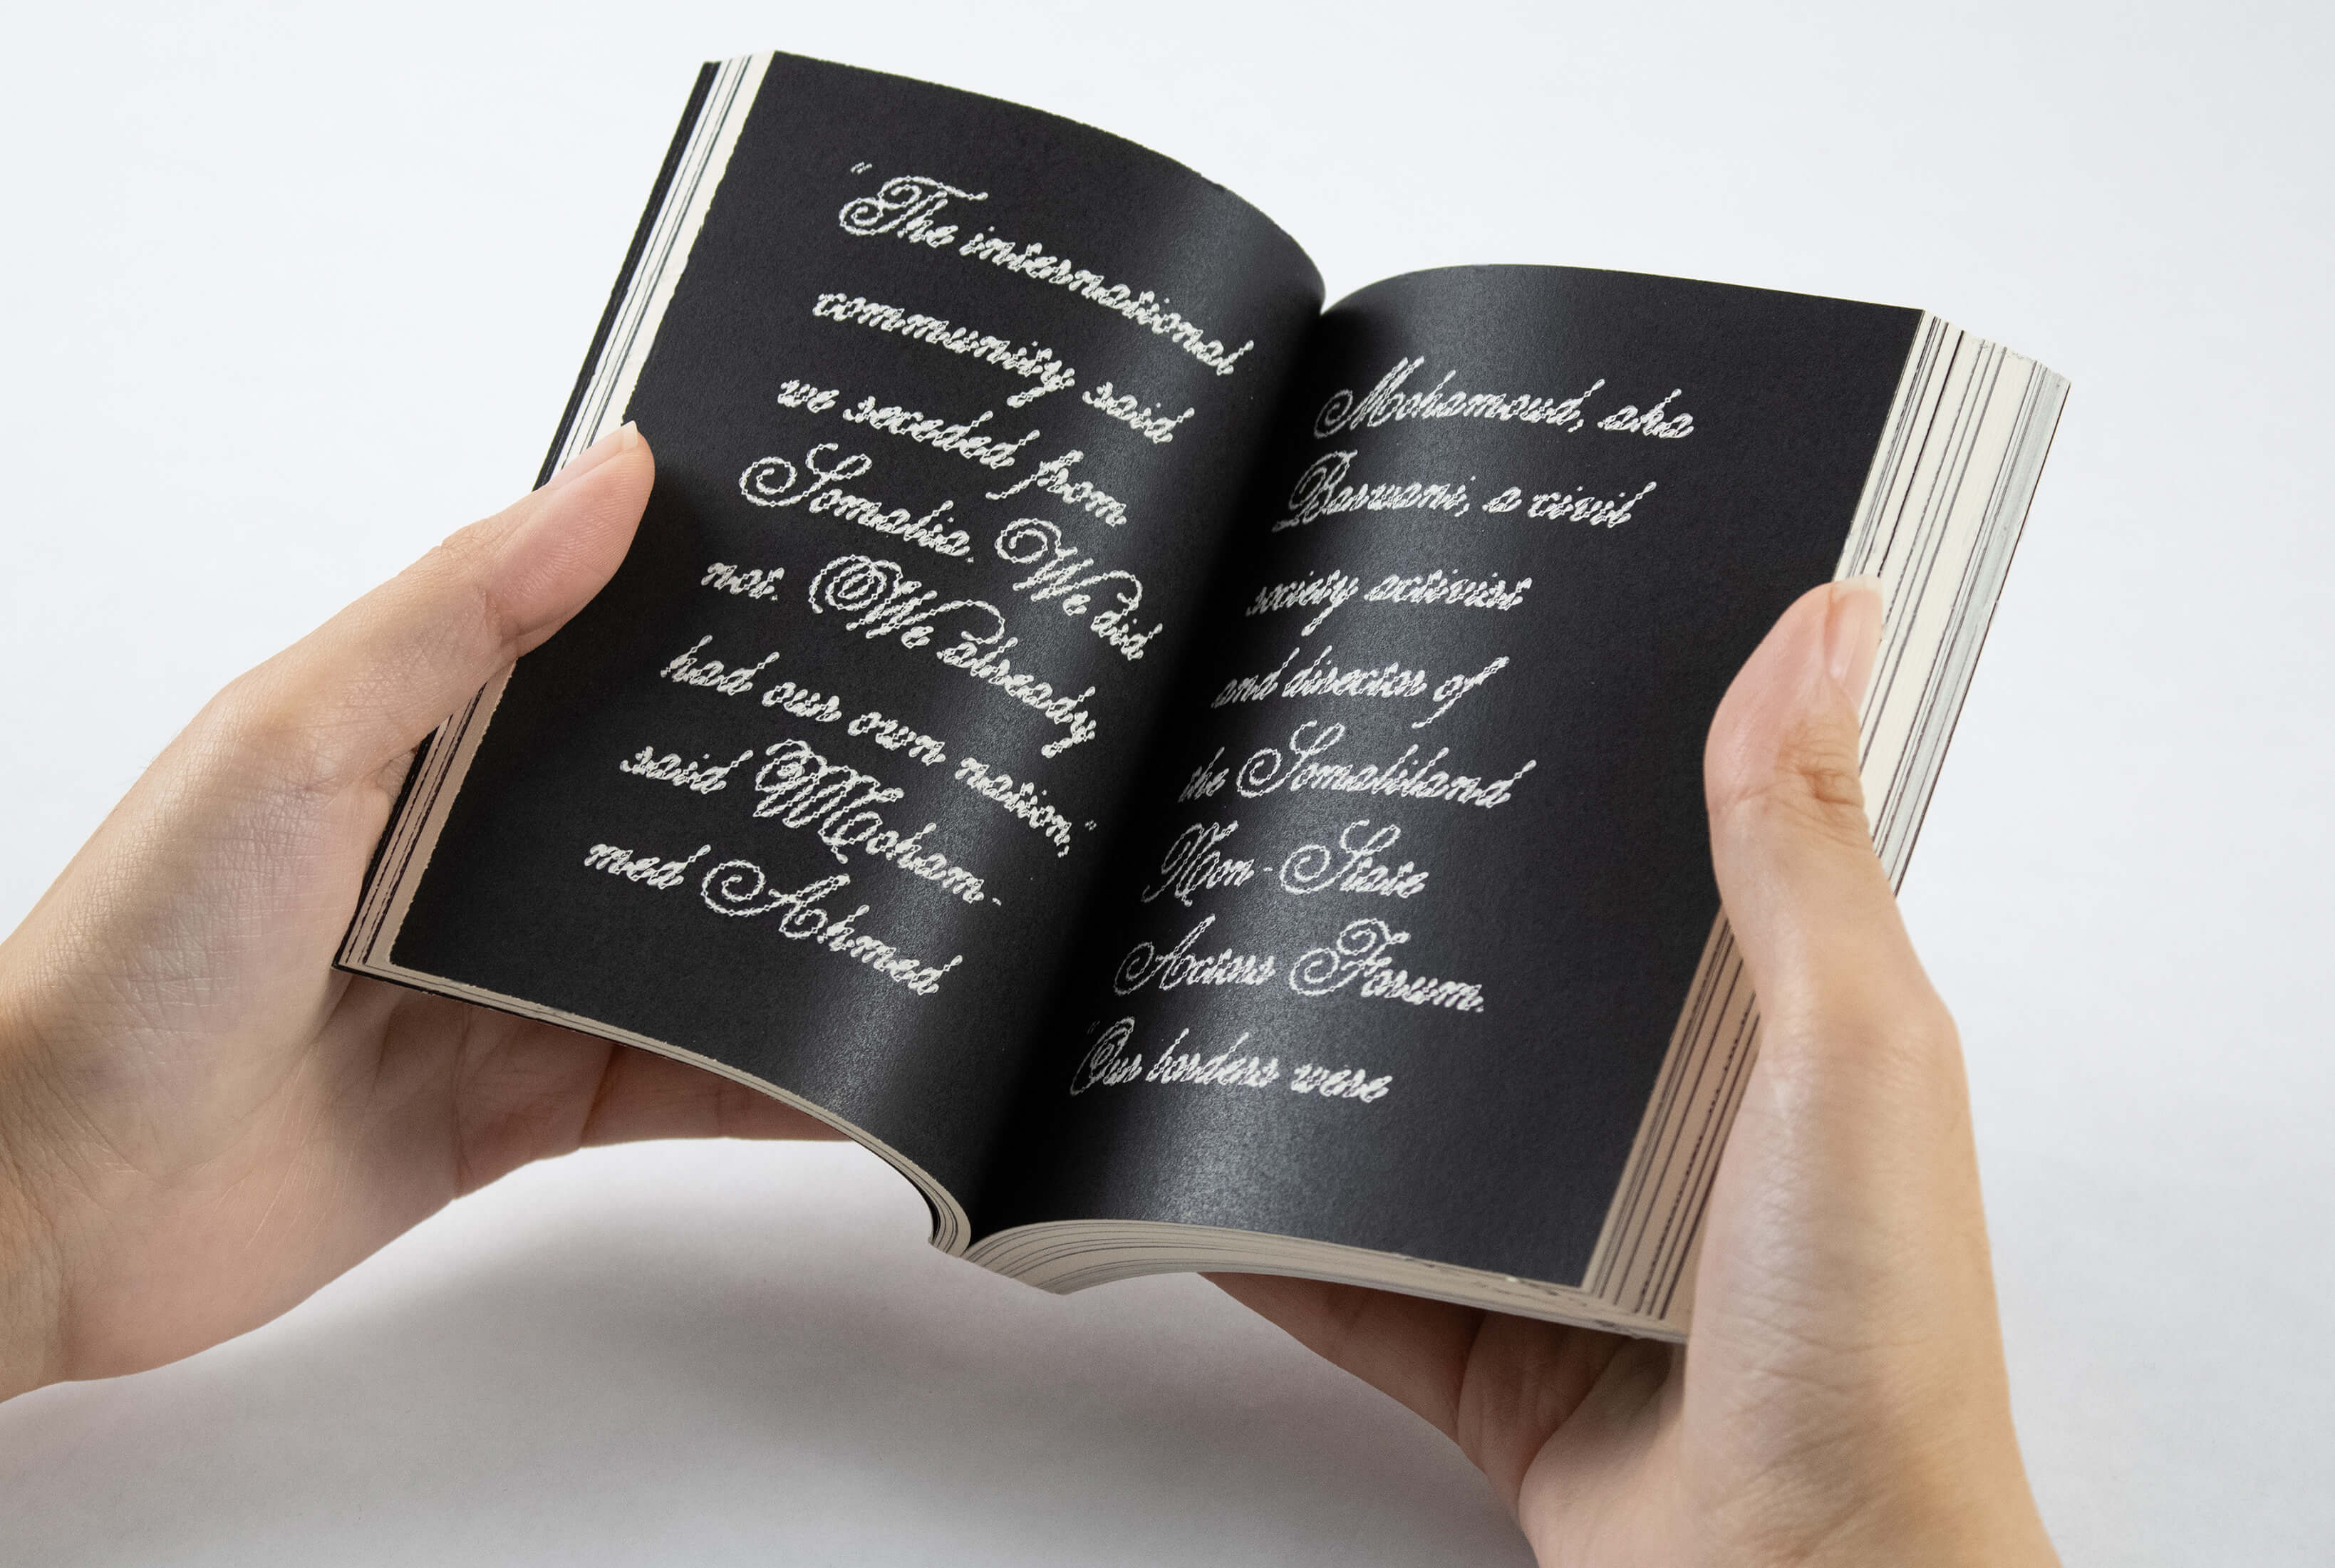 "The international
community said
we seceded from
Somalia. We did
not. We already
had our own nation,"
said Moham-
med Ahmed
Mohamoud, aka
Barwani, a civil
society activist
and director of
the Somaliland
Non-State
Actors Forum.
"Our borders were